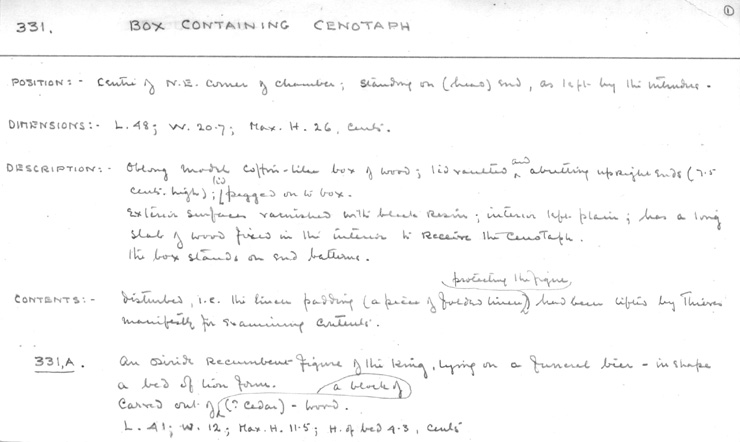 ①
331. BOX CONTAINING CENOTAPH
POSITION: - Centre of N.E. corner of chamber; standing on (head) end, as left by the intruders.
DIMENSIONS: - L. 48; W. 20.7; Max. H. 26, cents.
DESCRIPTION: - Oblong model coffin-like box of wood; lid vaulted and abutting upright ends (7.5
cents. high); lid pegged on to box.
Exterior surfaces varnished with black resin; interior left plain; has a long
slab of wood fixed in the interior to receive the Cenotaph.
The box stands on end battens.
protecting the figure
CONTENTS: - Disturbed, i.e. the linen padding (a piece of folded linen) had been lifted by Thieves
manifestly for examining contents.
331,A. An Osiride recumbent figure of the King, lying on a funeral bier - in shape
a bed of lion form. a block of
Carved out of (? cedar) - wood.
L. 41; W. 12; Max. H. 11.5; H. of bed 4.3, cents